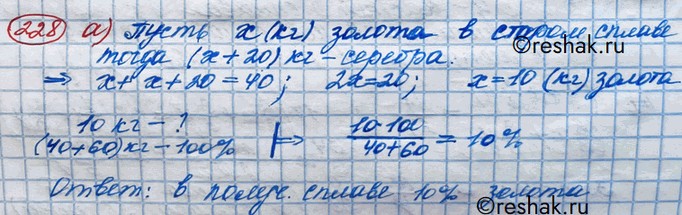 228 а) Пусть x (кг) золота в старом сплаве
тогда (x+20) кг – серебра.
©reshak.ru
⇒ x + x + 20 = 40; 2x = 20; x = 10 (кг) золота
10 кг – ?
(40+60) кг – 100% ⇒ 10·100 / 40+60 = 10%
Ответ: в получ. сплаве 10% золота
©reshak.ru